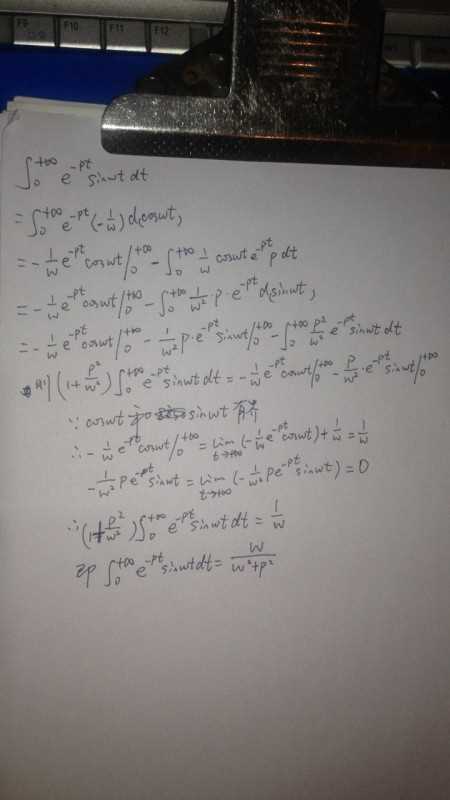 F9 F10 F11 F12
∫₀^{+∞} e^{-pt} sinwt dt
= ∫₀^{+∞} e^{-pt} (-1/w) d(coswt)
= -1/w e^{-pt} coswt /₀^{+∞} - ∫₀^{+∞} 1/w coswt e^{-pt} p dt
= -1/w e^{-pt} coswt /₀^{+∞} - ∫₀^{+∞} 1/w² · p · e^{-pt} d(sinwt)
= -1/w e^{-pt} coswt /₀^{+∞} - 1/w² p · e^{-pt} sinwt /₀^{+∞} - ∫₀^{+∞} p²/w² e^{-pt} sinwt dt
则 (1 + p²/w²) ∫₀^{+∞} e^{-pt} sinwt dt = -1/w e^{-pt} coswt /₀^{+∞} - p/w² · e^{-pt} sinwt /₀^{+∞}
∵ coswt sinwt 有界
∴ -1/w e^{-pt} coswt /₀^{+∞} = lim_{t→+∞} (-1/w e^{-pt} coswt) + 1/w = 1/w
-1/w² p e^{-pt} sinwt = lim_{t→+∞} (-1/w² p e^{-pt} sinwt) = 0
∴ (1 + p²/w²) ∫₀^{+∞} e^{-pt} sinwt dt = 1/w
即 ∫₀^{+∞} e^{-pt} sinwt dt = w/(w²+p²)